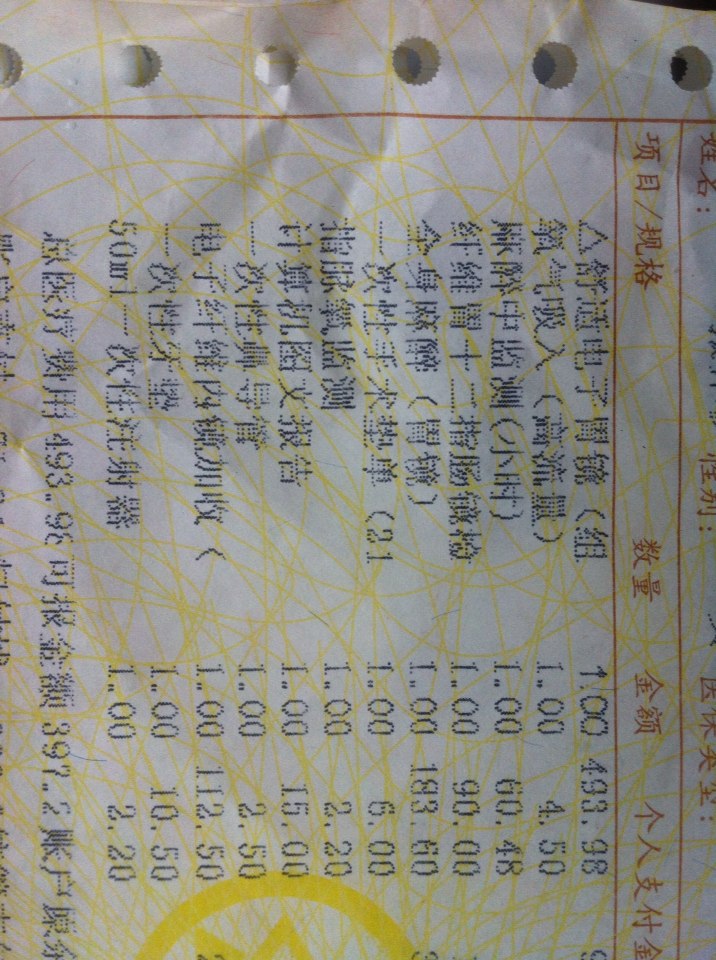 姓名： 性别： 医保类型：
项目/规格 数量 金额 个人支付金
△舒适电子胃镜（组 1.00 493.98
氧气吸入（高流量） 1.00 4.50
麻醉中监测(小时) 1.00 60.48
纤维胃十二指肠镜检 1.00 90.00
全身麻醉（胃镜） 1.00 183.60
一次性手术垫单（21 1.00 6.00
指脉氧监测 1.00 2.20
计算机图文报告 1.00 15.00
一次性鼻导管 1.00 2.50
电子纤维内镜加收（ 1.00 112.50
一次性牙垫 1.00 10.50
50ml一次性注射器 1.00 2.20
总医疗费用 493.98 可报金额 397.2 账户原余